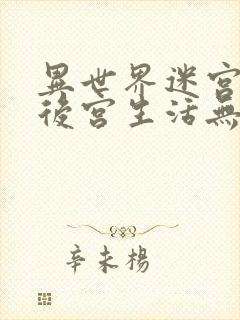 異世界迷宮
後宮生活無
辛未楊